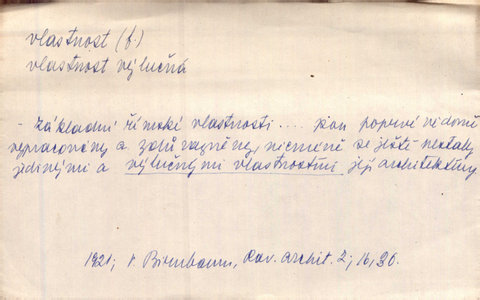 vlastnost (f.)
vlastnost výlučná
- Základní římské vlastnosti .... jsou poprvé vědomě
vypracovány a zdůrazněny, nicméně se ještě nestaly
jedinými a výlučnými vlastnostmi její architektury
1921; V. Birnbaum, Rav. archit. 2; 16, 30.